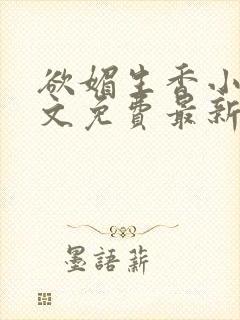 欲媚生香小
文免费最新
墨語薪